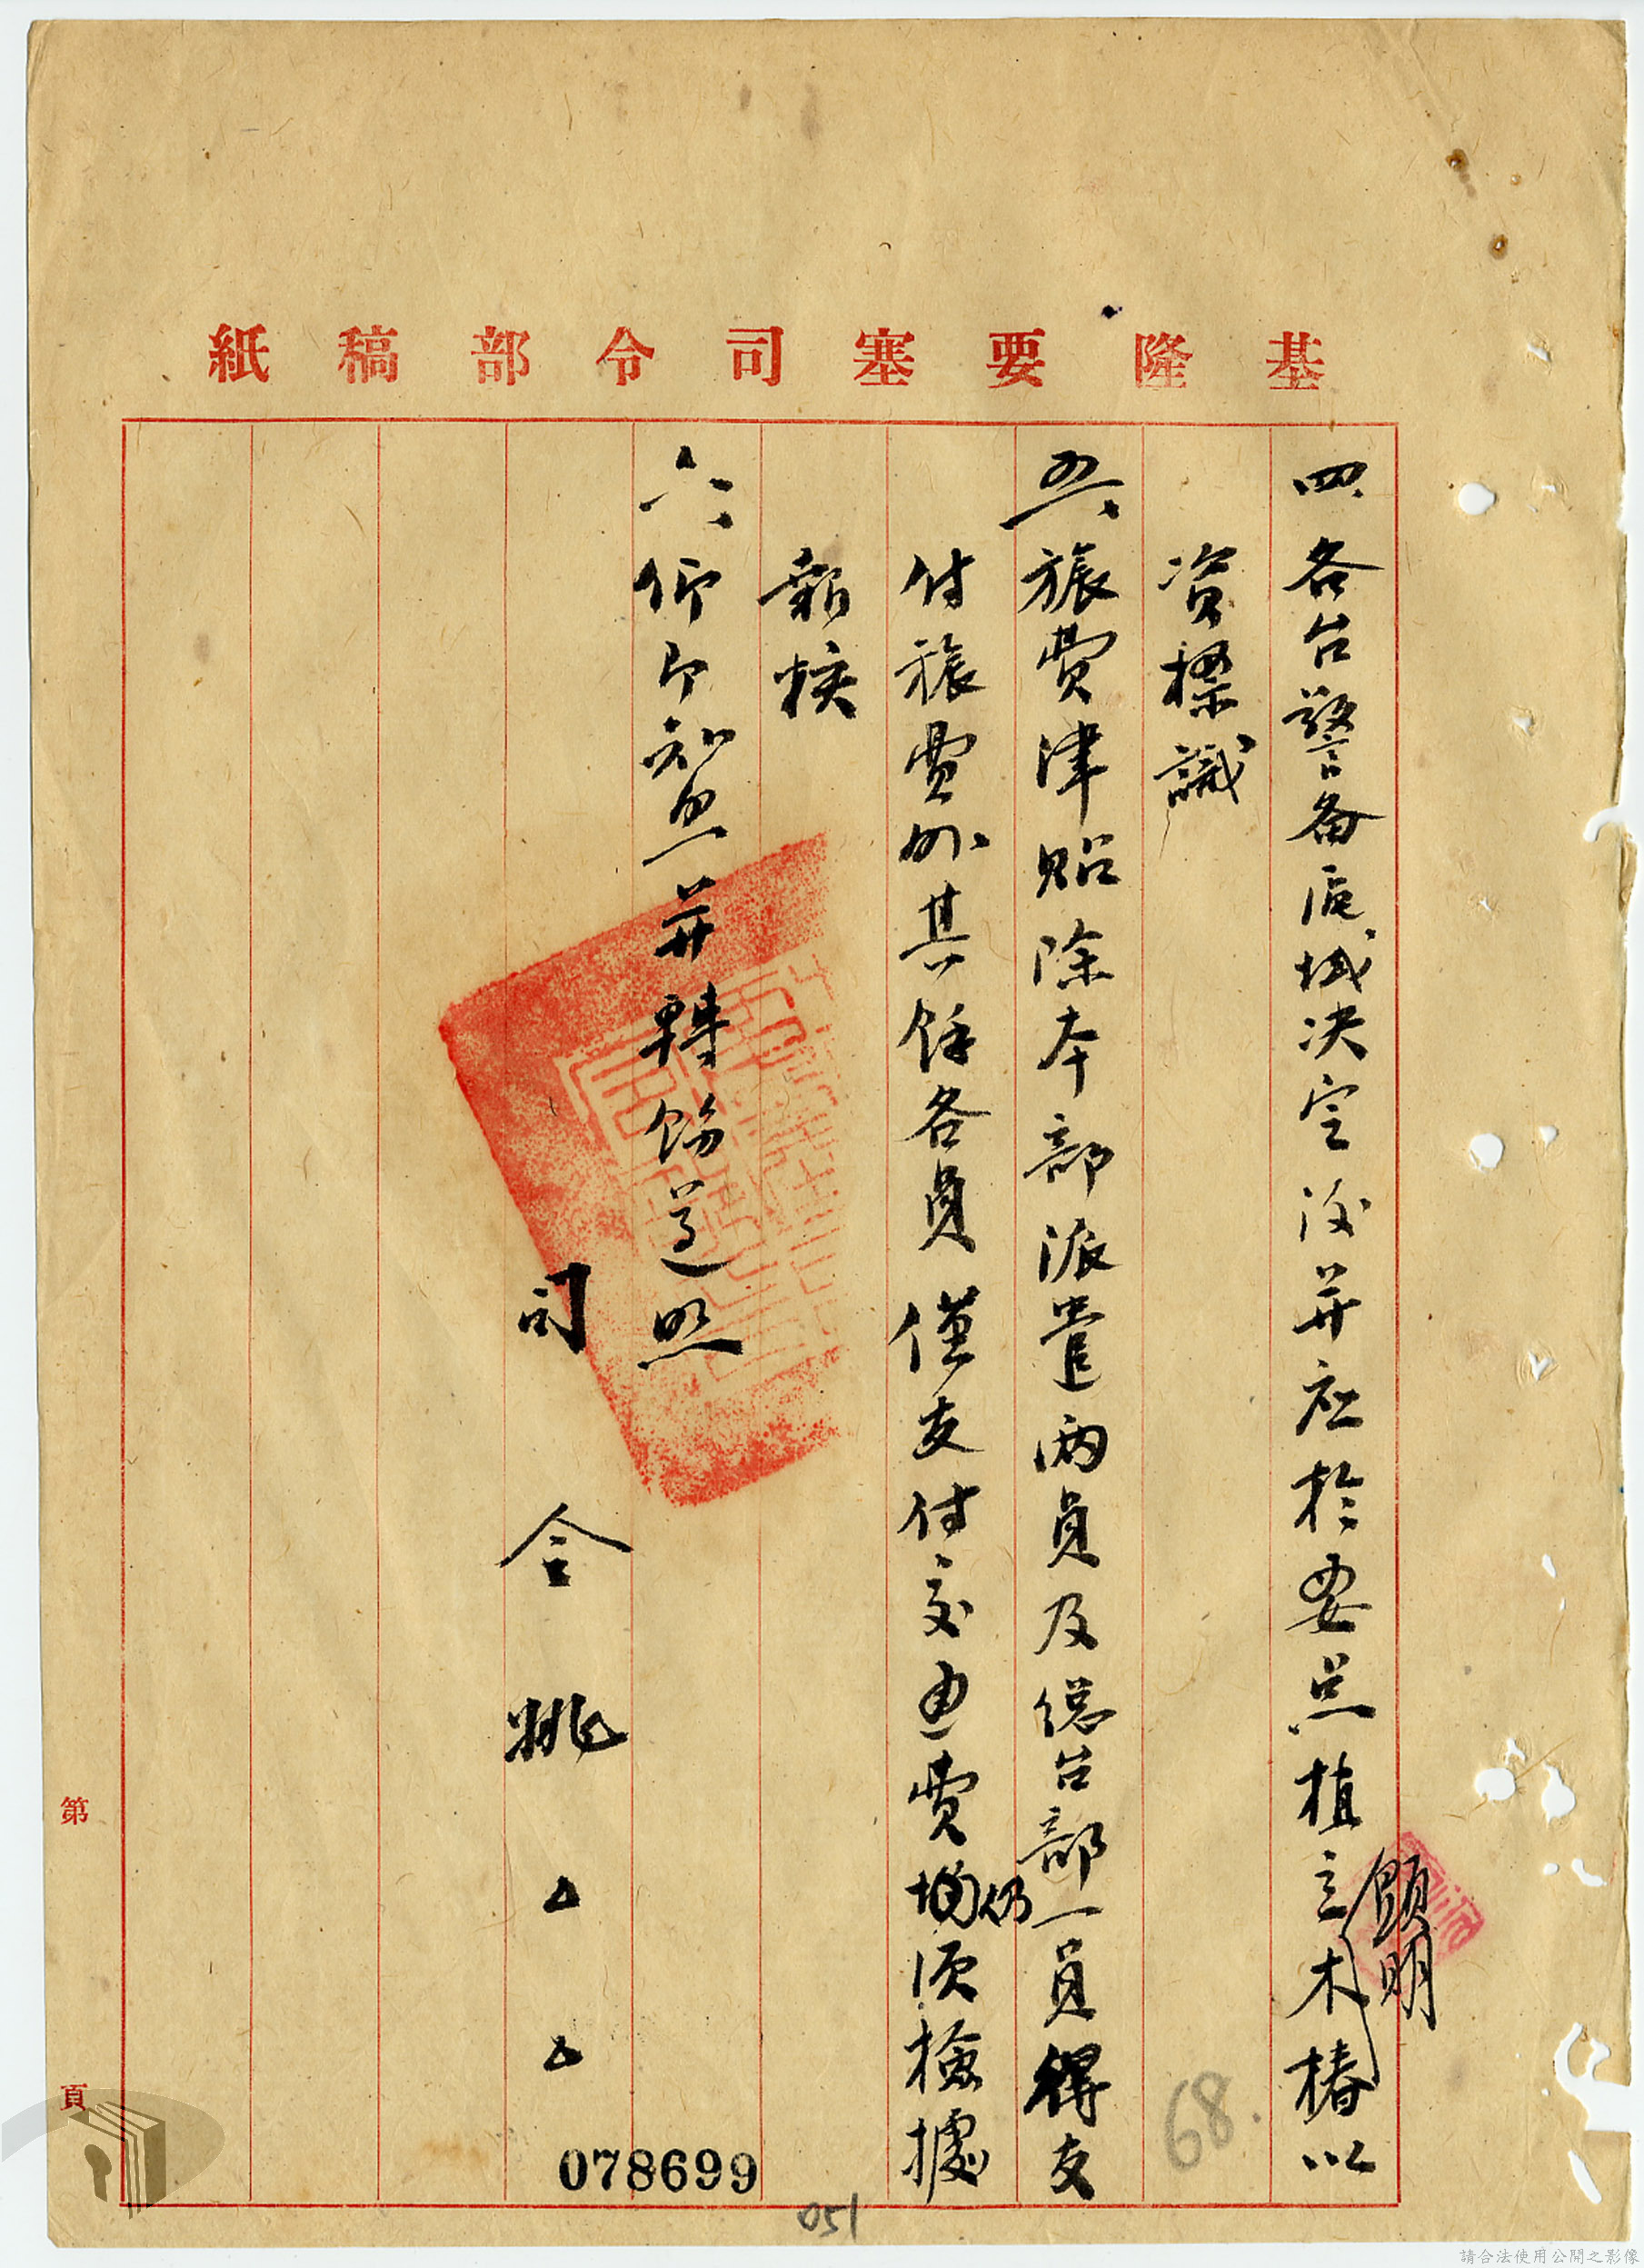 基隆要塞司令部稿紙
四、各台警备区域决定后并应於要点植立顕明木樁以
资標識
五、旅費津貼除本部派遣两員及總台部一員得支
付旅費外其餘各員僅支付交通費均仍須檢據
報核
六、仰即知照并轉飭遵照
司令姚
第
頁
68.
078699
051
請合法使用公開之影像